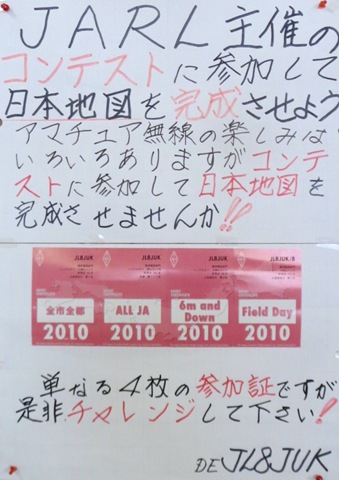 JARL主催の
コンテストに参加して
日本地図を完成させよう
アマチュア無線の楽しみは
いろいろありますがコンテ
ストに参加して日本地図を
完成させませんか!!
JL8JUK JL8JUK JL8JUK JL8JUK/8
全市全郡 ALL JA 6m and Down Field Day
2010 2010 2010 2010
単なる4枚の参加証ですが
是非チャレンジして下さい!
DE JL8JUK